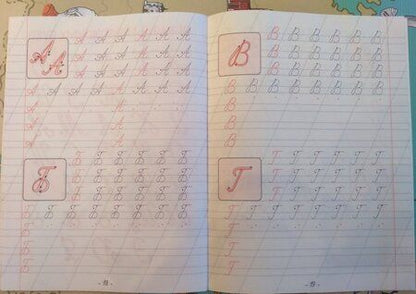 А А
А А А А А А
А А А А А А
А А А А А А
А А А А А А А А
А А
А А
А А
Б
Б Б Б Б Б Б
Б Б Б Б Б Б
Б Б Б Б Б Б
Б Б Б Б Б Б Б Б
Б
Б
Б
В
В В В В В В
В В В В В В
В В В В В В
В В В В В В В В
В
В
В
Г
Г Г Г Г Г Г
Г Г Г Г Г Г
Г Г Г Г Г Г
Г Г Г Г Г Г Г Г
Г
Г
Г